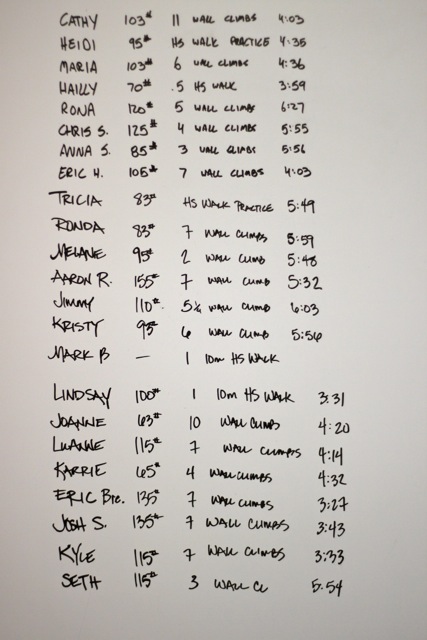 CATHY 103# 11 WALL CLIMBS 4:03
HEIDI 95# HS WALK PRACTICE 4:35
MARIA 103# 6 WALL CLIMBS 4:36
HAILLY 70# .5 HS WALK 3:59
RONA 120# 5 WALL CLIMBS 6:27
CHRIS S. 125# 4 WALL CLIMBS 5:55
ANNA S. 85# 3 WALL CLIMBS 5:56
ERIC H. 105# 7 WALL CLIMBS 4:03
TRICIA 83# HS WALK PRACTICE 5:49
RONDA 83# 7 WALL CLIMBS 5:59
MELANE 95# 2 WALL CLIMB 5:48
AARON R. 155# 7 WALL CLIMB 5:32
JIMMY 110# WALL CLIMB 6:03
KRISTY 95# 6 WALL CLIMB 5:56
MARK B — 1 10M HS WALK
LINDSAY 100# 1 10M HS WALK 3:31
JOANNE 63# 10 WALL CLIMBS 4:20
LUANNE 115# 7 WALL CLIMBS 4:14
KARRIE 65# 4 WALL CLIMBS 4:32
ERIC Bre. 135# 7 WALL CLIMBS 3:27
JOSH S. 135# 7 WALL CLIMBS 3:43
KYLE 115# 7 WALL CLIMBS 3:33
SETH 115# 3 WALL CL 5:54